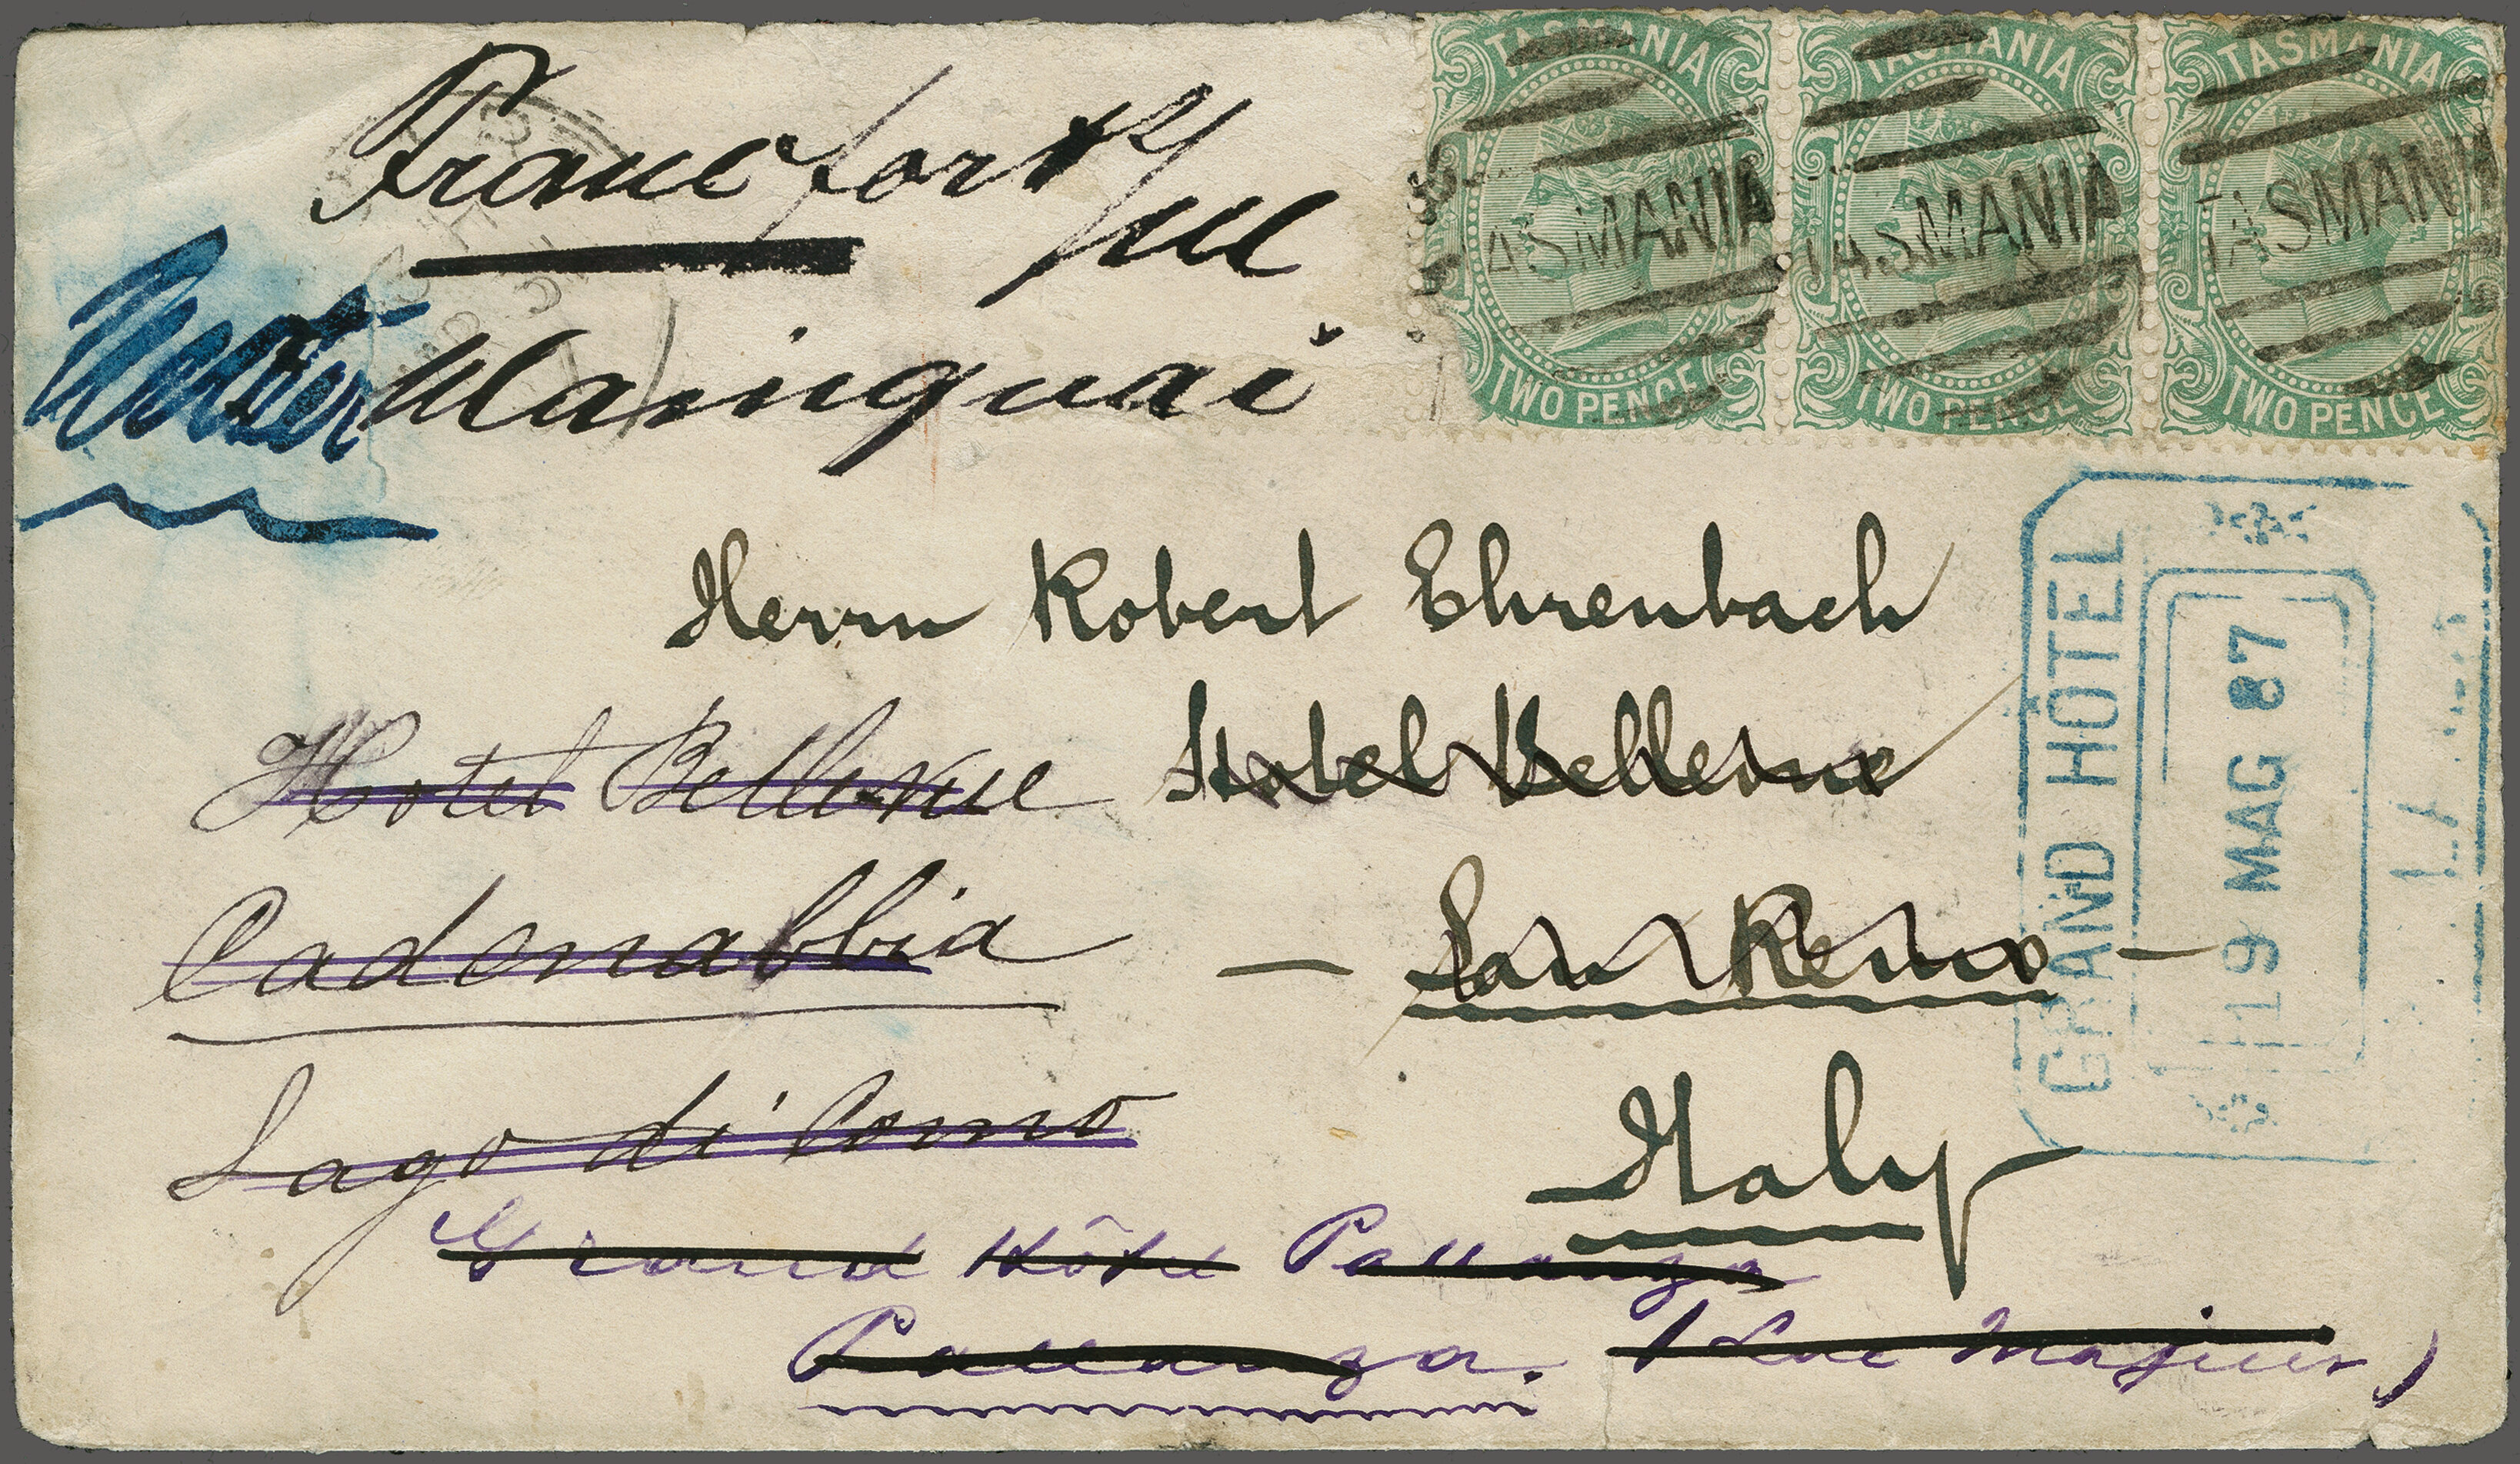 Francfort s/M
Mainquai
TASMANIA TASMANIA TASMANIA
TASMANIA TASMANIA TASMANIA
TWO PENCE TWO PENCE TWO PENCE
Herrn Robert Ehrenbach
Hotel Bellevue
San Remo
Italy
Hotel Bellevue
Cadenabbia
Lago di Como
Grand Hôtel Pallanza
Pallanza. (Lac Majeur)
GRAND HOTEL
19 MAG 87